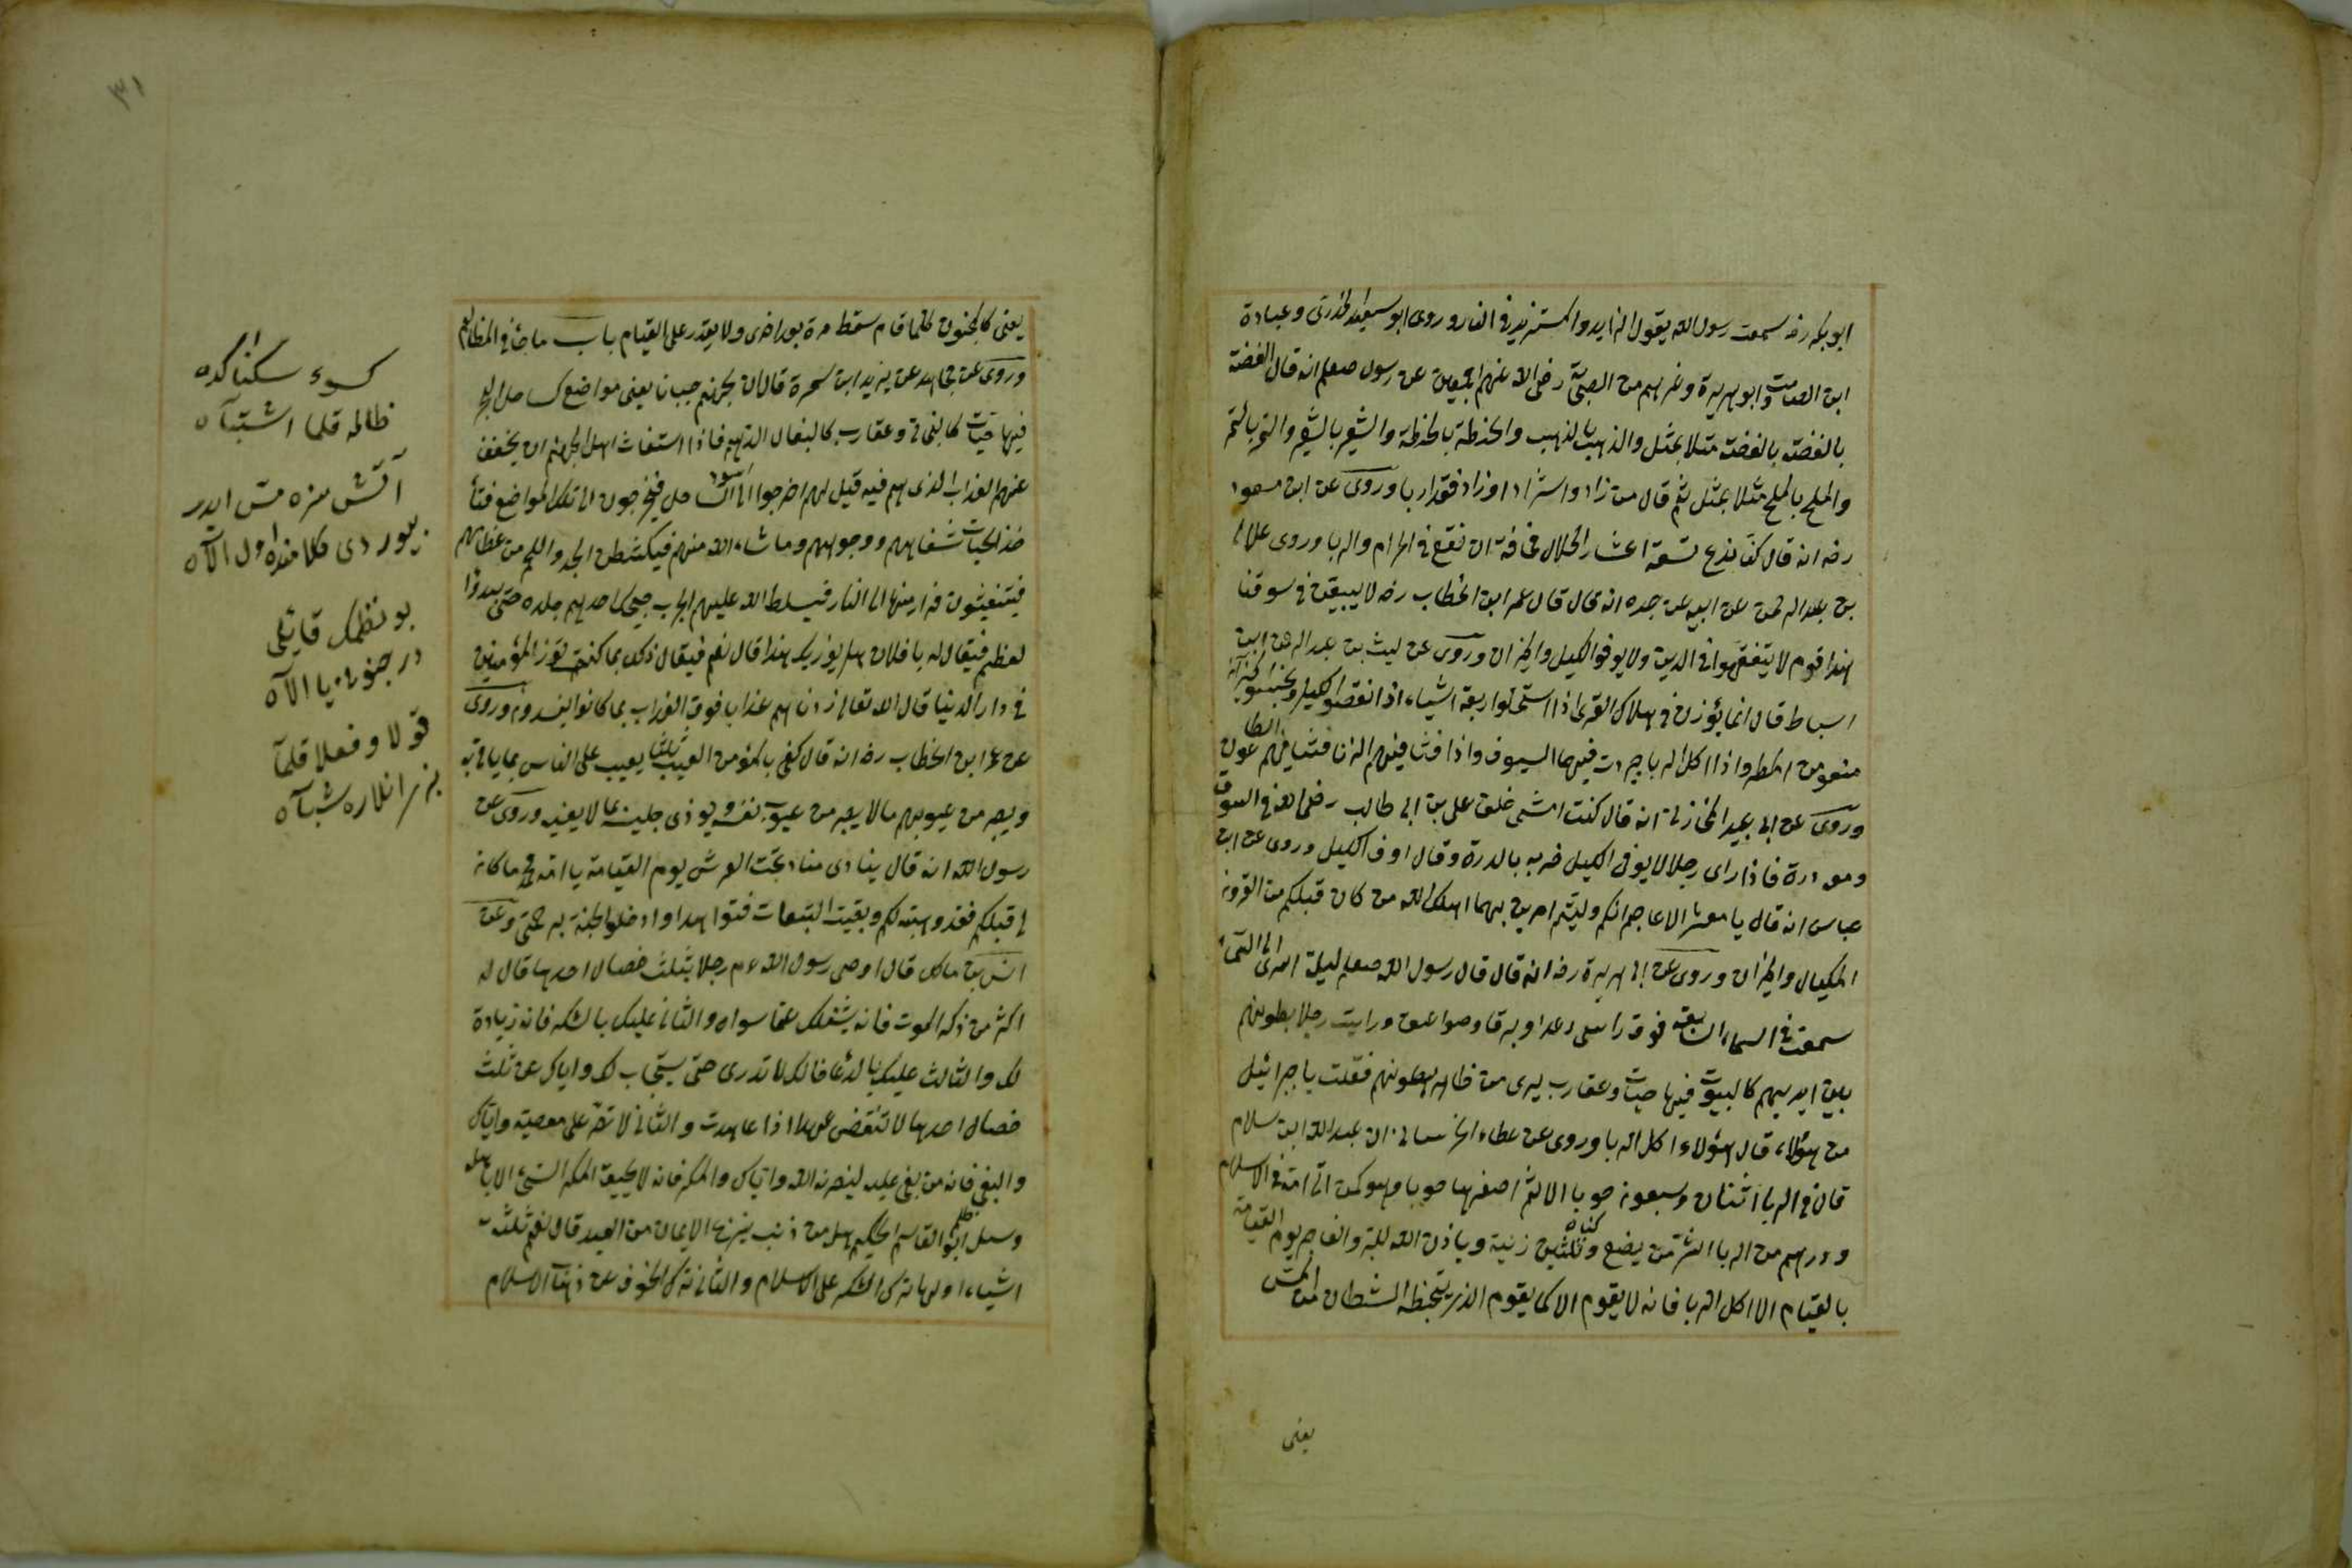 ابو بكر رضه سمعت رسول الله يقول الزايد والمستزيد في النار وروى ابو سعيد الخدرى وعبادة
ابن الصامت وابو هريرة وغيرهم من الصحابة رضى الله عنهم اجمعين عن رسول صعلم انه قال الفضة
بالفضة مثلا بمثل والذهب بالذهب والحنطة بالحنطة والشعير بالشعير والتمر بالتمر
والملح بالملح مثلا بمثل ثم قال من زاد واستزاد فقد اربا وروى عن ابن مسعود
رضه انه قال كنا ندع تسعة اعشار الحلال مخافة ان نقع في الحرام والربا وروى علاء
بن عبد الرحمن عن ابيه عن جده انه قال قال عمر ابن الخطاب رضه لا يبيعن في سوقنا
هذا قوم لا يتفقهوا في الدين ولا يوفوا الكيل والميزان وروى عن ليث بن عبد الرحمن ابن
اسباط قال انما يؤذن في هلاك القرى اذا استحلوا اربعة اشياء اذا نقصوا الكيل وبخسوا الميزان
منعو من المطر واذا اكل الربا جردت فيهم السيوف واذا فشا فيهم الزنا فشا فيهم الطاعون
وروى عن ابى عبيد المخازنى انه قال كنت امشى خلف على بن ابى طالب رضى الله عنه في السوق
ومعه درة فاذا راى رجلا لا يوفى الكيل ضربه بالدرة وقال اوف الكيل وروى عن ابن
عباس انه قال يا معشر الاعاجم انكم وليتم امرين بهما اهلك الله من كان قبلكم من القرون
المكيال والميزان وروى عن ابى هريرة رضه انه قال قال رسول الله صعلم ليلة اسرى الى السماء
سمعت في السماء السابعة فوق راسى رعدا وبرقا وصواعق ورايت رجلا بطونهم
بين ايديهم كالبيوت فيها حيات وعقارب يرى من ظاهر بطونهم فقلت يا جبرائيل
من هؤلاء قال هؤلاء اكل الربا وروى عن عطاء الخرسانى ان عبد الله ابن سلام
قال في الربا اثنان وسبعون حوبا الاثم اصغرها حوبا وهو كمن اتى امه في الاسلام
ودرهم من الربا اشر من بضع وثلثين زنية وياذن الله للبر والفاجر يوم القيامة
بالقيام الا اكل الربا فانه لا يقوم الا كما يقوم الذى يتخبطه الشيطان من المس
يعنى
٣١
يعنى كالمجنون كلما قام سقط مرة بعد اخرى ولا يقدر على القيام باب ما جاء في المظالم
وروى عن مجاهد عن يزيد ابن سمرة قال ان لجهنم جبانا يعنى مواضع كساحل البحر
فيها حيات كالبخاتى وعقارب كالبغال الدهم فاذا استغاث اهل الجهنم ان يخفف
عنهم العذاب الذى هم فيه قيل لهم اخرجوا الى الساحل فيخرجون الى تلك المواضع فتأ
خذ الحيات شفاههم ووجوههم وما شاء الله منهم فيكشطن الجلد واللحم من عظامهم
فيستغيثون فرارا منها الى النار فيسلط الله عليهم الجرب فيحك احدهم جلده حتى يبدوا
لعظم فيقال له يا فلان هل يؤذيك هذا قال نعم فيقال ذلك بما كنت تؤذ المؤمنين
في دار الدنيا قال الله تعالى زدناهم عذابا فوق العذاب بما كانوا يفسدون وروى
عن عمر ابن الخطاب رضه انه قال كفى بالمؤمن العيب ثلثا يعيب على الناس بما ياتى به
ويبصر من عيوبهم ما لا يبصر من عيوب نفسه ويوذى جليسه بما لا يعنيه وروى عن
رسول الله انه قال ينادى مناد تحت العرش يوم القيامة يا امة محمد ما كان
لى قبلكم فقد وهبته لكم وبقيت التبعات فتواهبوا وادخلوا الجنة برحمتى وعن
انس بن مالك قال اوصى رسول الله عم رجلا بثلث خصال احدها قال له
اكثر من ذكر الموت فانه يشغلك عما سواه والثانى عليك بالشكر فانه زيادة
لك والثالث عليك بالدعاء فانك لا تدرى حتى يستجاب لك واياك عن ثلث
خصال احدها لا تنقض عهدا اذا عاهدت والثانى لا تصر على معصية واياك
والبغى فانه من بغى عليه لينصرنه الله واياك والمكر فانه لا يحيق المكر السئ الا باهله
وسئل ابو القاسم الحكيم هل من ذنب ينزع الايمان من العبد قال نعم ثلثة
اشياء اولها ترك الشكر على الاسلام والثانى ترك الخوف عن ذهاب الاسلام
ظالمه قلما اشتباه
بو نظمك قائلى
قولا وفعلا قلما